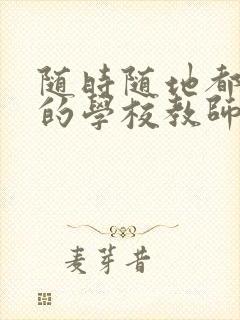 随時随地都
的學校教師
麦芽昔